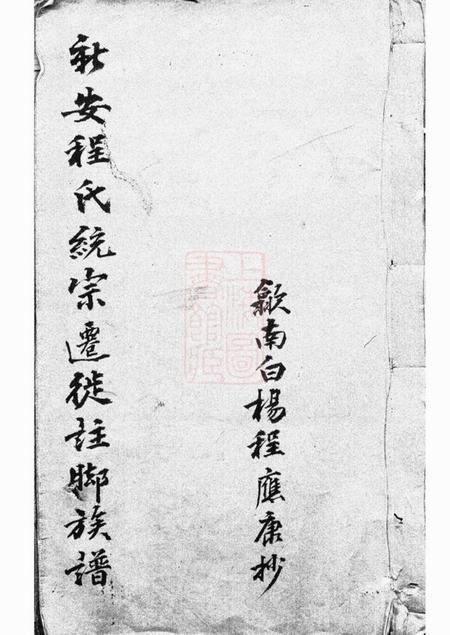 歙南白楊程應康抄
新安程氏統宗遷徙註腳族譜
上海圖書館藏